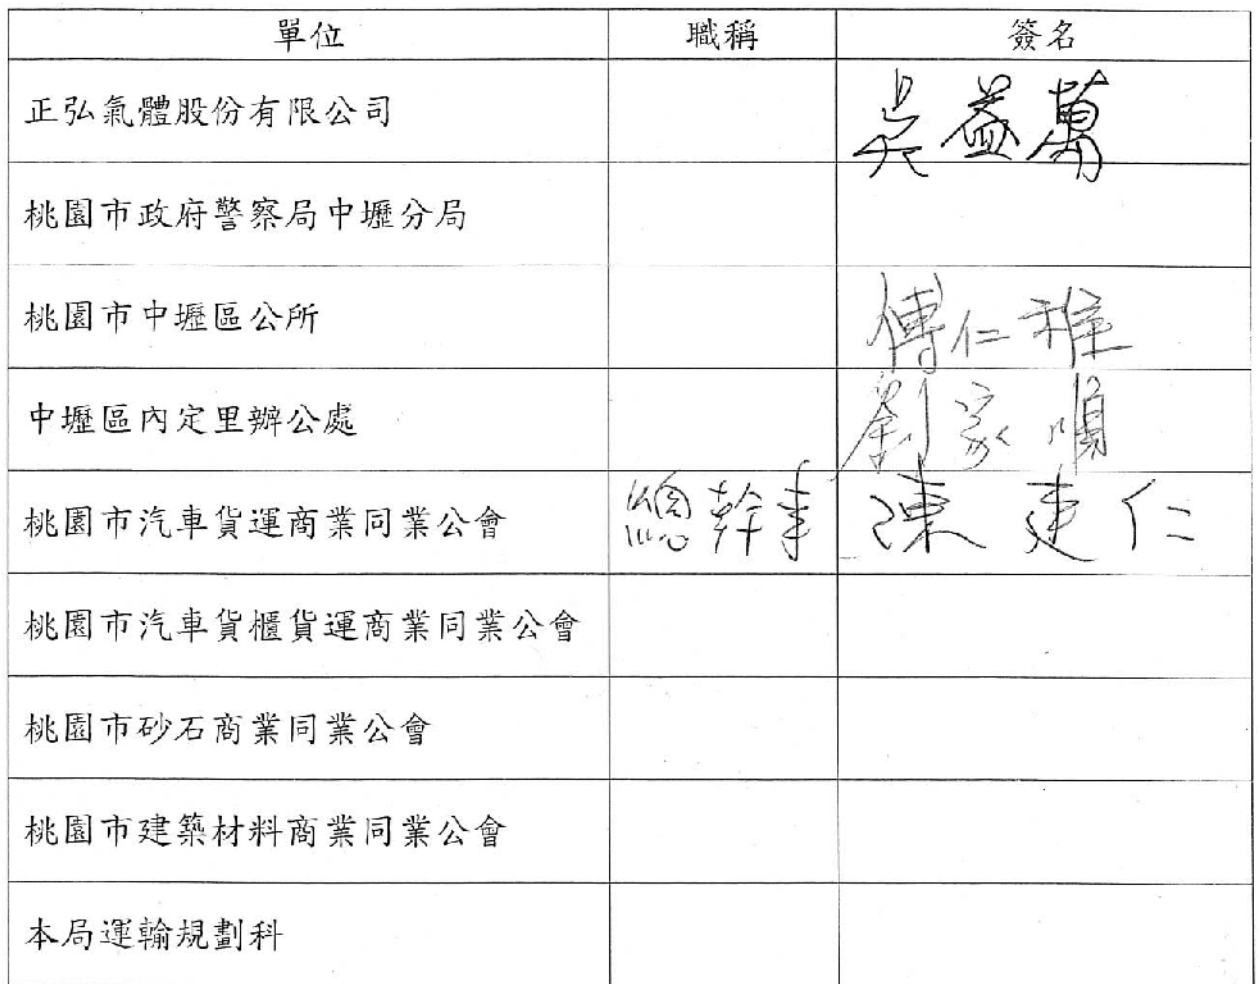 單位 職稱 簽名
正弘氣體股份有限公司 吳益萬
桃園市政府警察局中壢分局
桃園市中壢區公所 傅仁雅
中壢區內定里辦公處 劉家順
桃園市汽車貨運商業同業公會 總幹事 陳建仁
桃園市汽車貨櫃貨運商業同業公會
桃園市砂石商業同業公會
桃園市建築材料商業同業公會
本局運輸規劃科